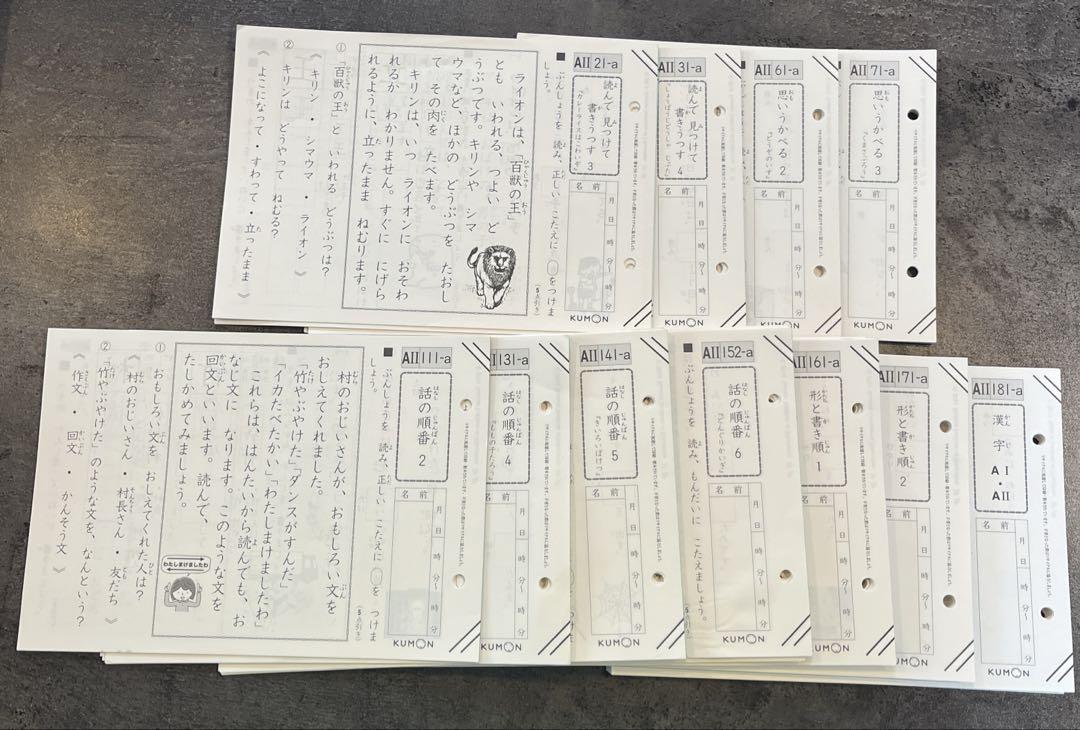 AII 71-a
思いうかべる 3
名前
月 日 時 分〜 時 分
KUMON
AII 61-a
思いうかべる 2
「どうぞのいす」
名前
月 日 時 分〜 時 分
KUMON
AII 31-a
読んで 見つけて
書きうつす 4
名前
月 日 時 分〜 時 分
KUMON
AII 21-a
読んで 見つけて
書きうつす 3
「カレーライスはこわいぞ」
名前
月 日 時 分〜 時 分
KUMON
■ ぶんしょうを 読み、正しい こたえに ◯をつけま
しょう。
(5点引き)
ライオンは、「百獣の王」
とも いわれる、つよい ど
うぶつです。キリンや シマ
ウマなど、ほかの どうぶつを たおし
て その肉を たべます。
キリンは、いつ ライオンに おそわ
れるか わかりません。すぐに にげら
れるように、立ったまま ねむります。
① 「百獣の王」と いわれる どうぶつは?
《 キリン ・ シマウマ ・ ライオン 》
② キリンは どうやって ねむる?
《 よこになって ・ すわって ・ 立ったまま 》
AII 181-a
漢字
AI・AII
名前
月 日 時 分〜 時 分
KUMON
AII 171-a
形と書き順 2
名前
月 日 時 分〜 時 分
KUMON
AII 161-a
形と書き順 1
名前
月 日 時 分〜 時 分
KUMON
AII 152-a
話の順番 6
「どんぐりかいぎ」
名前
月 日 時 分〜 時 分
KUMON
■ ぶんしょうを 読み、もんだいに こたえましょう。
AII 141-a
話の順番 5
「きいろいばけつ」
名前
月 日 時 分〜 時 分
KUMON
II 131-a
話の順番 4
「ももの子たろう」
名前
月 日 時 分〜 時 分
KUMON
AII 111-a
話の順番 2
名前
月 日 時 分〜 時 分
KUMON
■ ぶんしょうを 読み、正しい こたえに ◯を つけま
しょう。
(5点引き)
村のおじいさんが、おもしろい文を
おしえてくれました。
「竹やぶやけた」「ダンスがすんだ」
「イカたべたかい」「わたしまけましたわ」
これらは、はんたいから読んでも、お
なじ文に なります。このような文を
回文といいます。読んで、
たしかめてみましょう。
わたしまけましたわ
① おもしろい文を おしえてくれた人は?
《 村のおじいさん ・ 村長さん ・ 友だち 》
② 「竹やぶやけた」のような文を、なんという?
《 作文 ・ 回文 ・ かんそう文 》